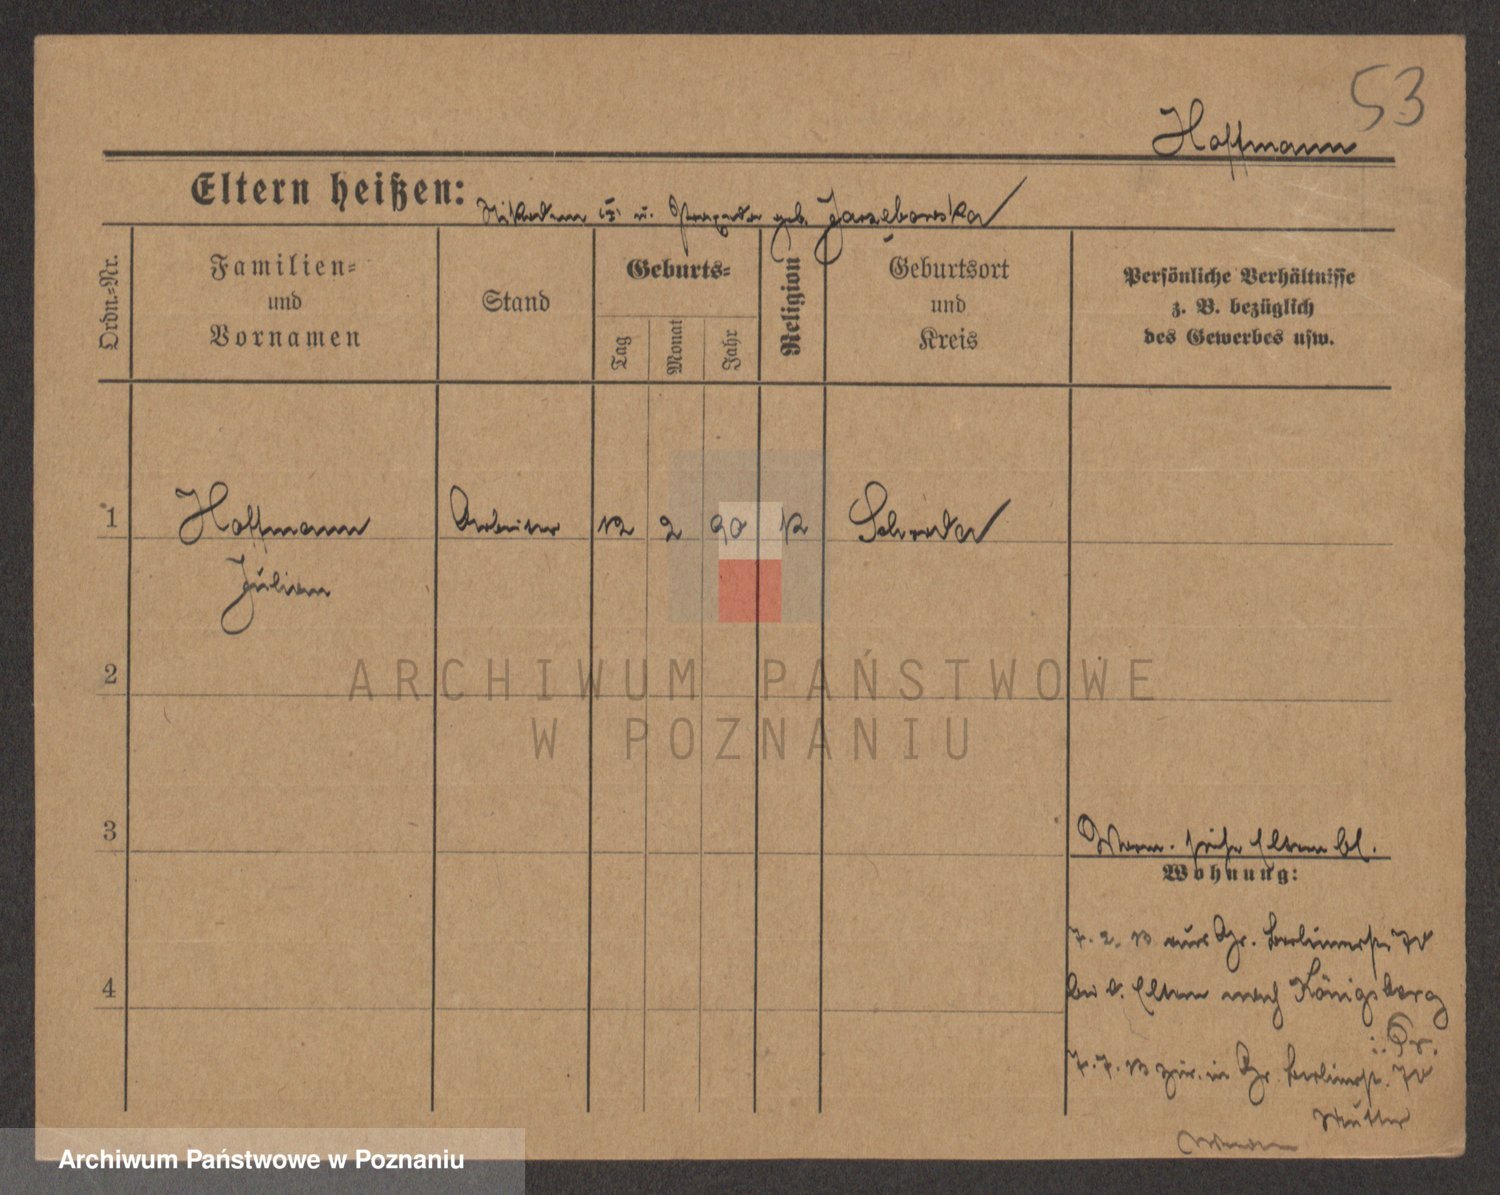 53
Hoffmann
Eltern heißen: Nikodem u. geb. Jarzeborska
Ordn.-Nr.
Familien=
und
Vornamen
Stand
Geburts=
Tag
Monat
Jahr
Religion
Geburtsort
und
Kreis
Persönliche Verhältnisse
z. B. bezüglich
des Gewerbes usw.
1 Hoffmann Arbeiter 12 2 90 K Schroda
Julian
2
3
Eltern bl.
Wohnung:
7. 2. 13 aus Gr. Berlinerstr. 70
4
bei d. Eltern nach Königsberg
i. Pr.
7. 7. 13 zur. in Gr. Berlinerstr. 70
Mutter
ARCHIWUM PAŃSTWOWE
W POZNANIU
Archiwum Państwowe w Poznaniu